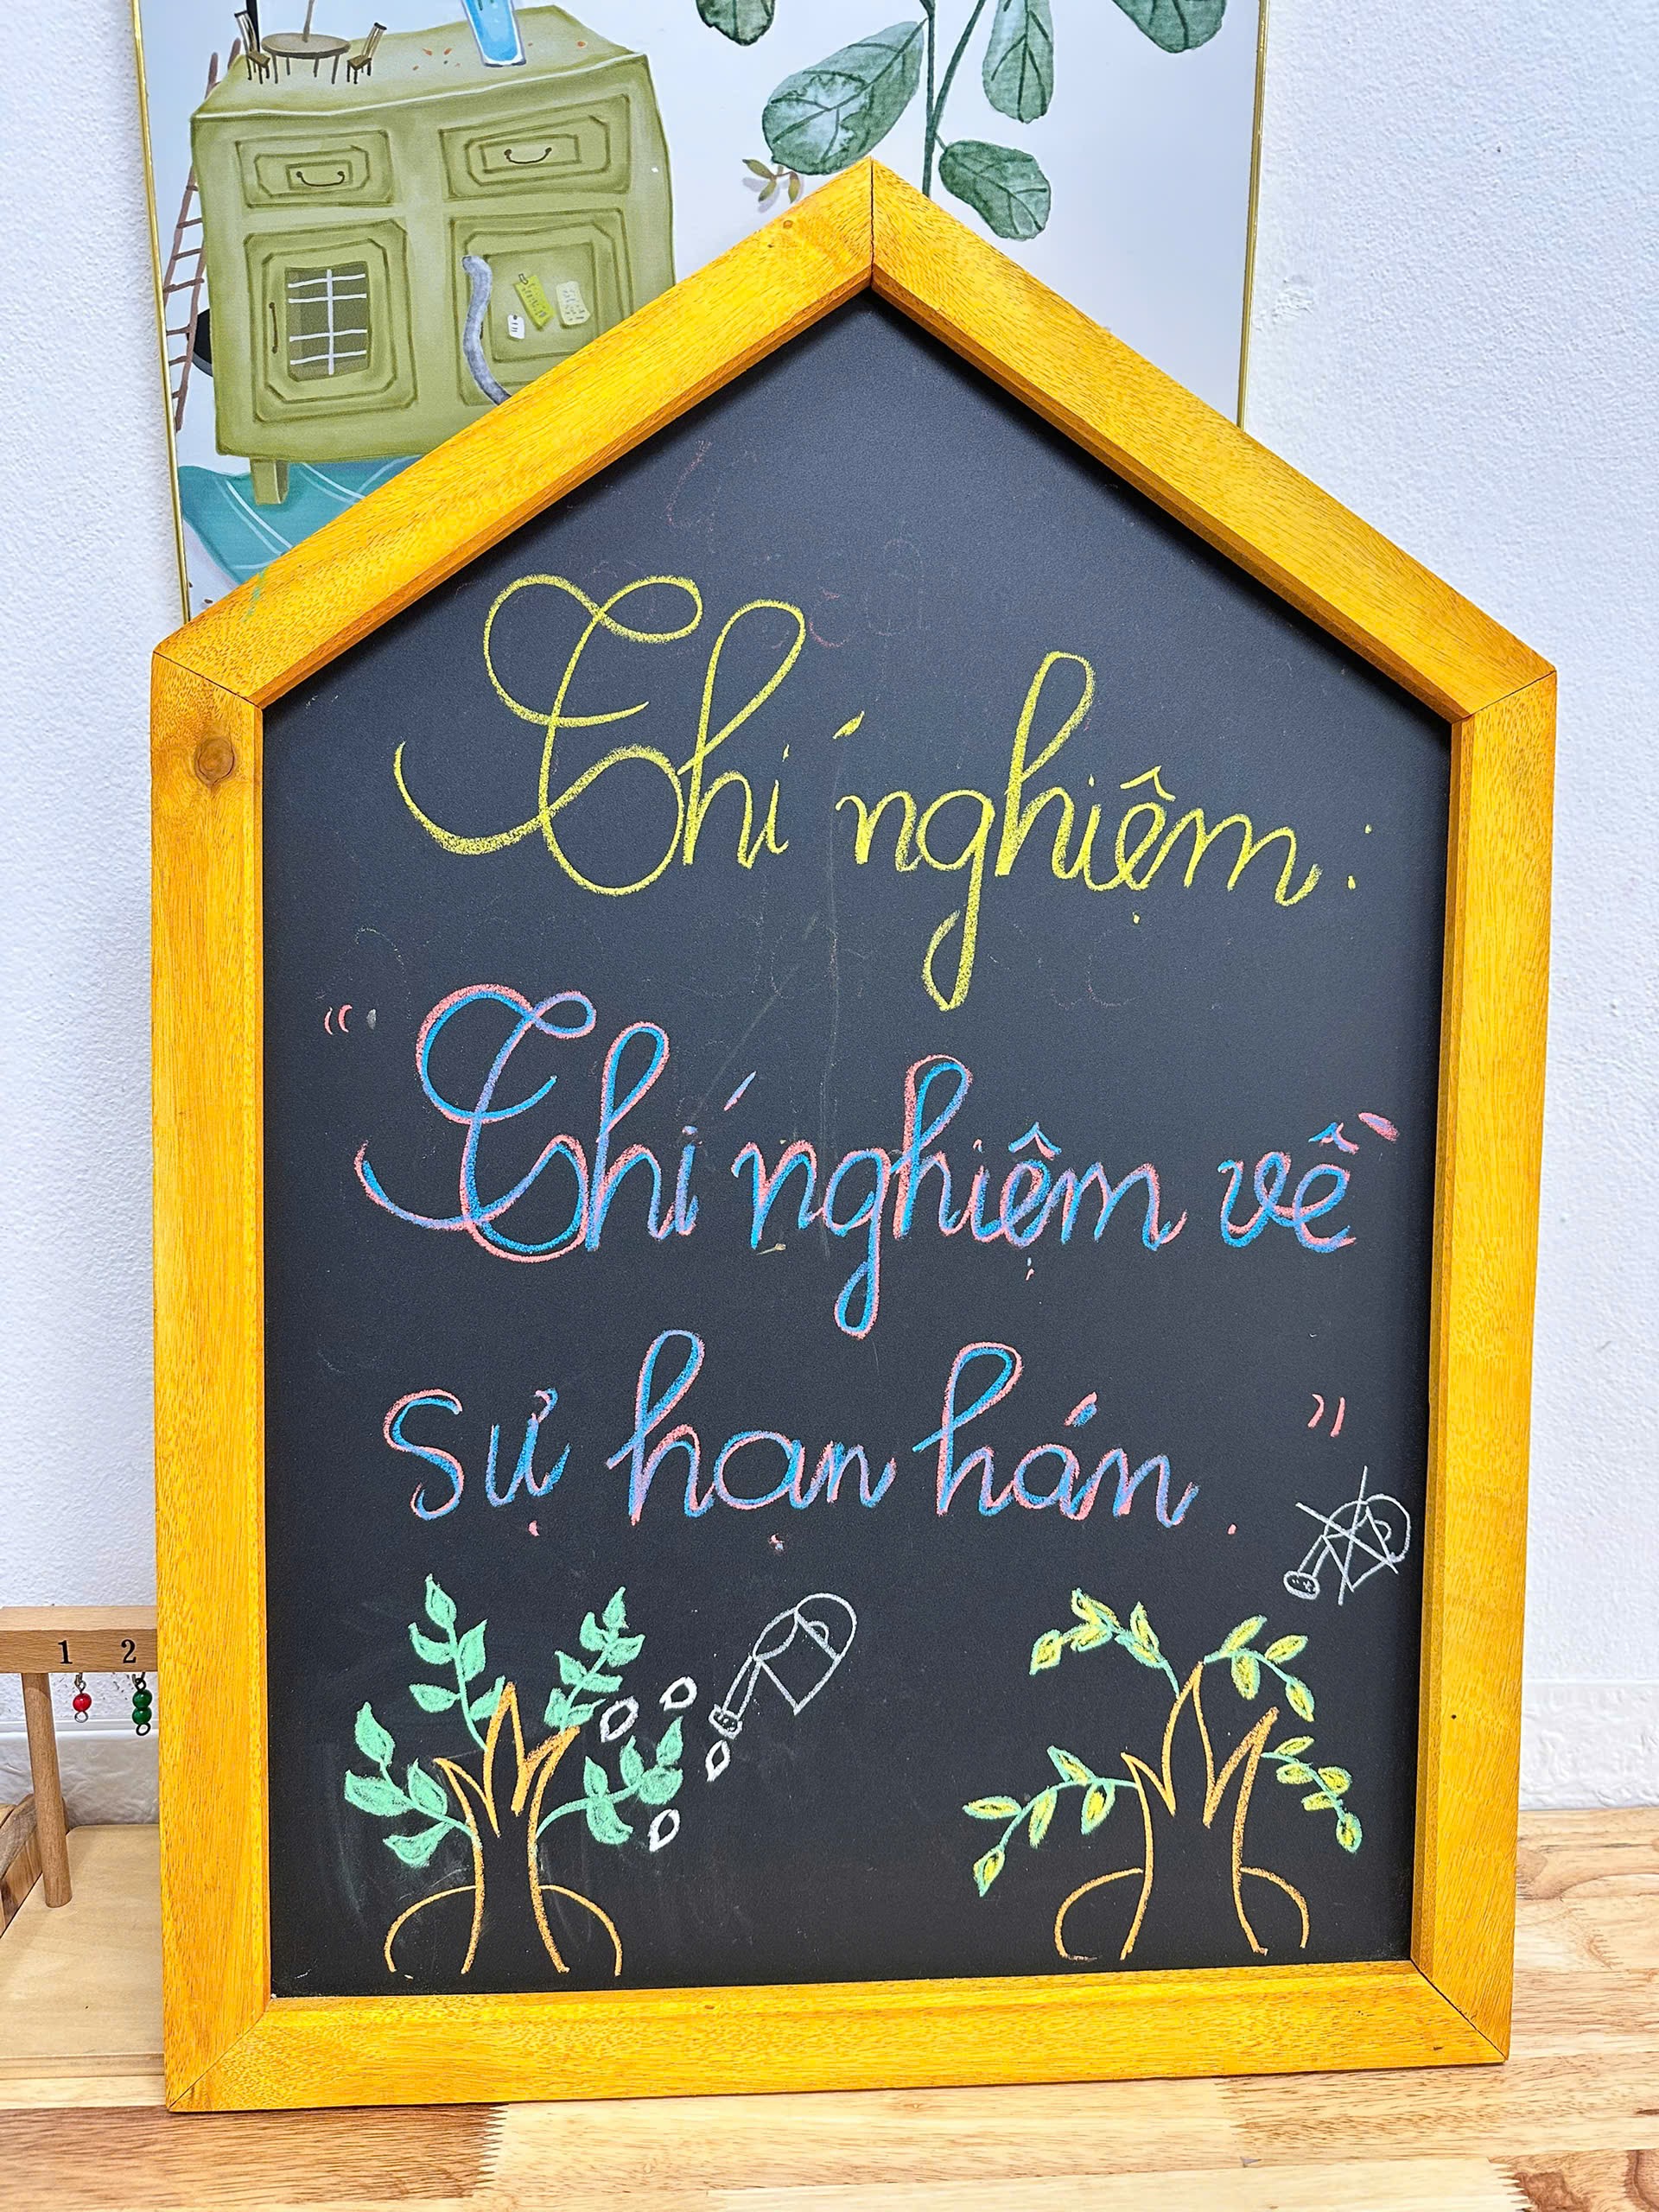 Thí nghiệm:
"Thí nghiệm về
sự hạn hán."
1 2